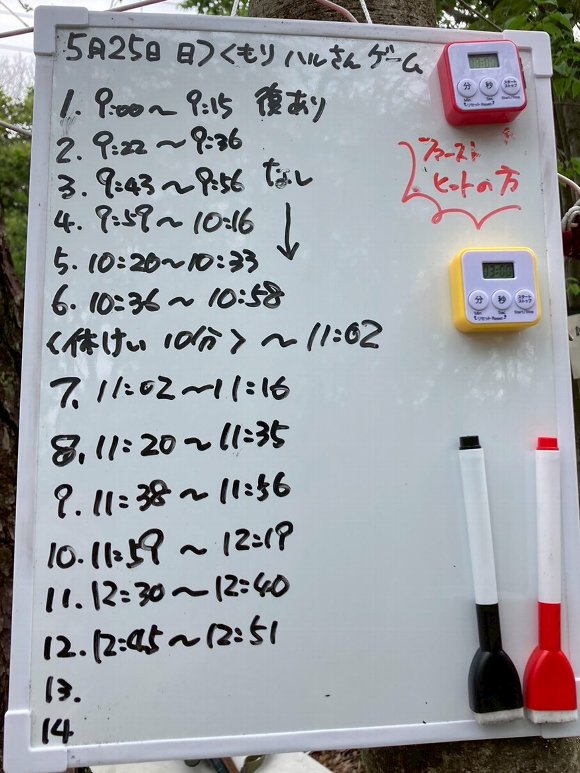 5月25日 日〉くもり ハルさん ゲーム
1. 9:00〜9:15 復あり
2. 9:22〜9:36
3. 9:43〜9:56 なし
4. 9:59〜10:16
↓
5. 10:20〜10:33
6. 10:36〜10:58
〈休けい 10分〉〜11:02
7. 11:02〜11:16
8. 11:20〜11:35
9. 11:38〜11:56
10. 11:59〜12:19
11. 12:30〜12:40
12. 12:45〜12:51
13.
14
ファースト
ヒットの方
分 秒 スタート ストップ
Min Sec Start/Stop
リセット Reset
分 秒 スタート ストップ
Min Sec Start/Stop
リセット Reset